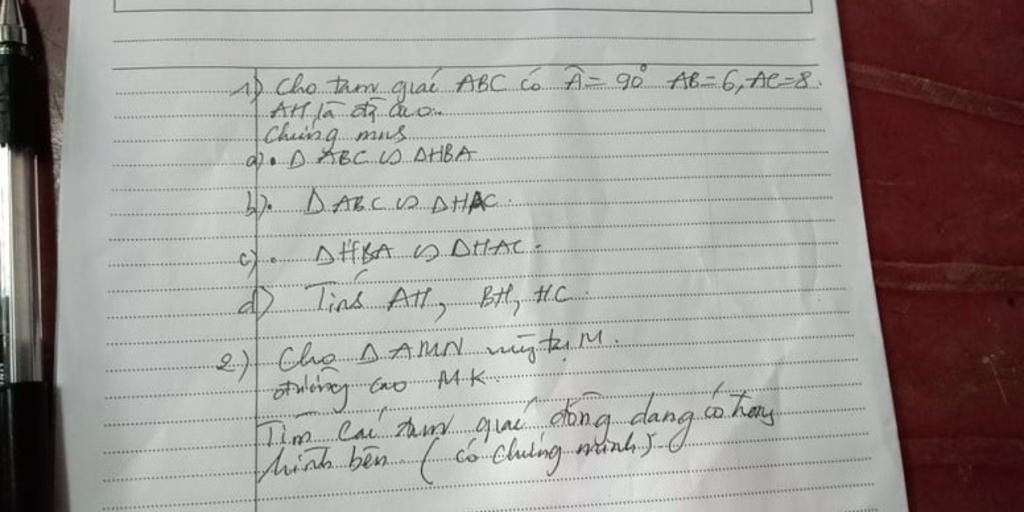 1) Cho tam giác ABC có Â = 90° AB = 6, AC = 8.
AH là đg cao.
Chứng mnh
a). Δ ABC ∽ ΔHBA
b). Δ ABC ∽ ΔHAC.
c). ΔHBA ∽ ΔHAC.
d) Tính AH, BH, HC.
2.) Cho Δ AMN vuông tại M.
đường cao MK.
Tìm các tam giác đồng dạng có trong
hình bên. (có chứng minh).